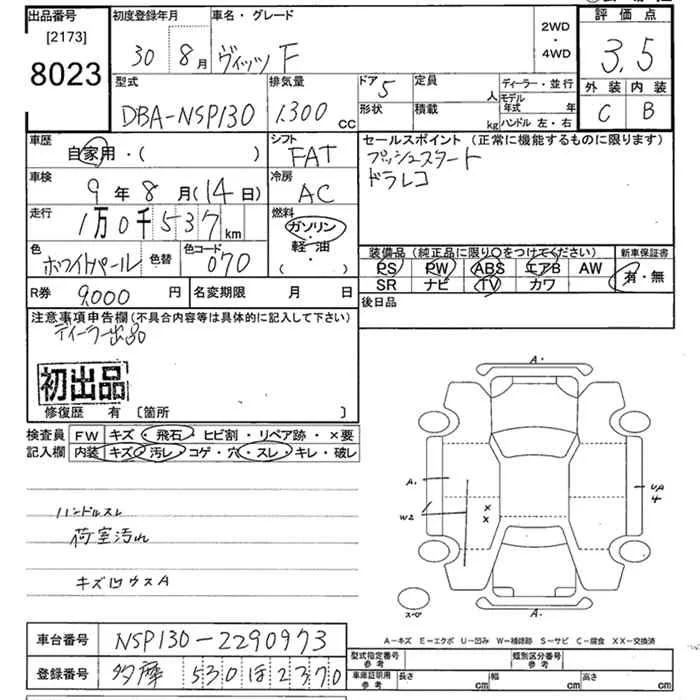 出品番号
[2173]
8023
初度登録年月
30 8月
車名・グレード
ヴィッツ F
2WD
・
4WD
評価点
3,5
外装 内装
C B
型式
DBA-NSP130
排気量
1,300 cc
ドア 5
定員 人
形状
積載 kg
ディーラー・並行
モデル年式 年
ハンドル 左・右
車歴
自家用・( )
シフト
FAT
車検
9年 8月(14日)
冷房
AC
走行
1万0千537km
燃料
ガソリン
軽油
( ・ )
色
ホワイトパール
色替
色コード
070
セールスポイント (正常に機能するものに限ります)
プッシュスタート
ドラレコ
装備品 (純正品に限り○をつけてください)
PS PW ABS エアB AW
SR ナビ TV カワ
新車保証書
有・無
R券 9,000 円
名変期限 月 日
後日品
注意事項申告欄(不具合内容等は具体的に記入して下さい)
ディーラー出品
初出品
修復歴 有 [箇所 ]
検査員記入欄
FW キズ・飛石・ヒビ割・リペア跡・×要
内装 キズ・汚レ・コゲ・穴・スレ・キレ・破レ
ハンドルスレ
荷室汚れ
キズ凹ウスA
A・
A・
W2
×
×
UA
4
スペア
A・
A-キズ E-エクボ U-凹み W-補修跡 S-サビ C-腐食 XX-交換済
車台番号 NSP130-2290973
登録番号 多摩 530 ほ 2370
型式指定番号 参考
類別区分番号 参考
車庫証明用 参考
長さ cm 幅 cm 高さ cm